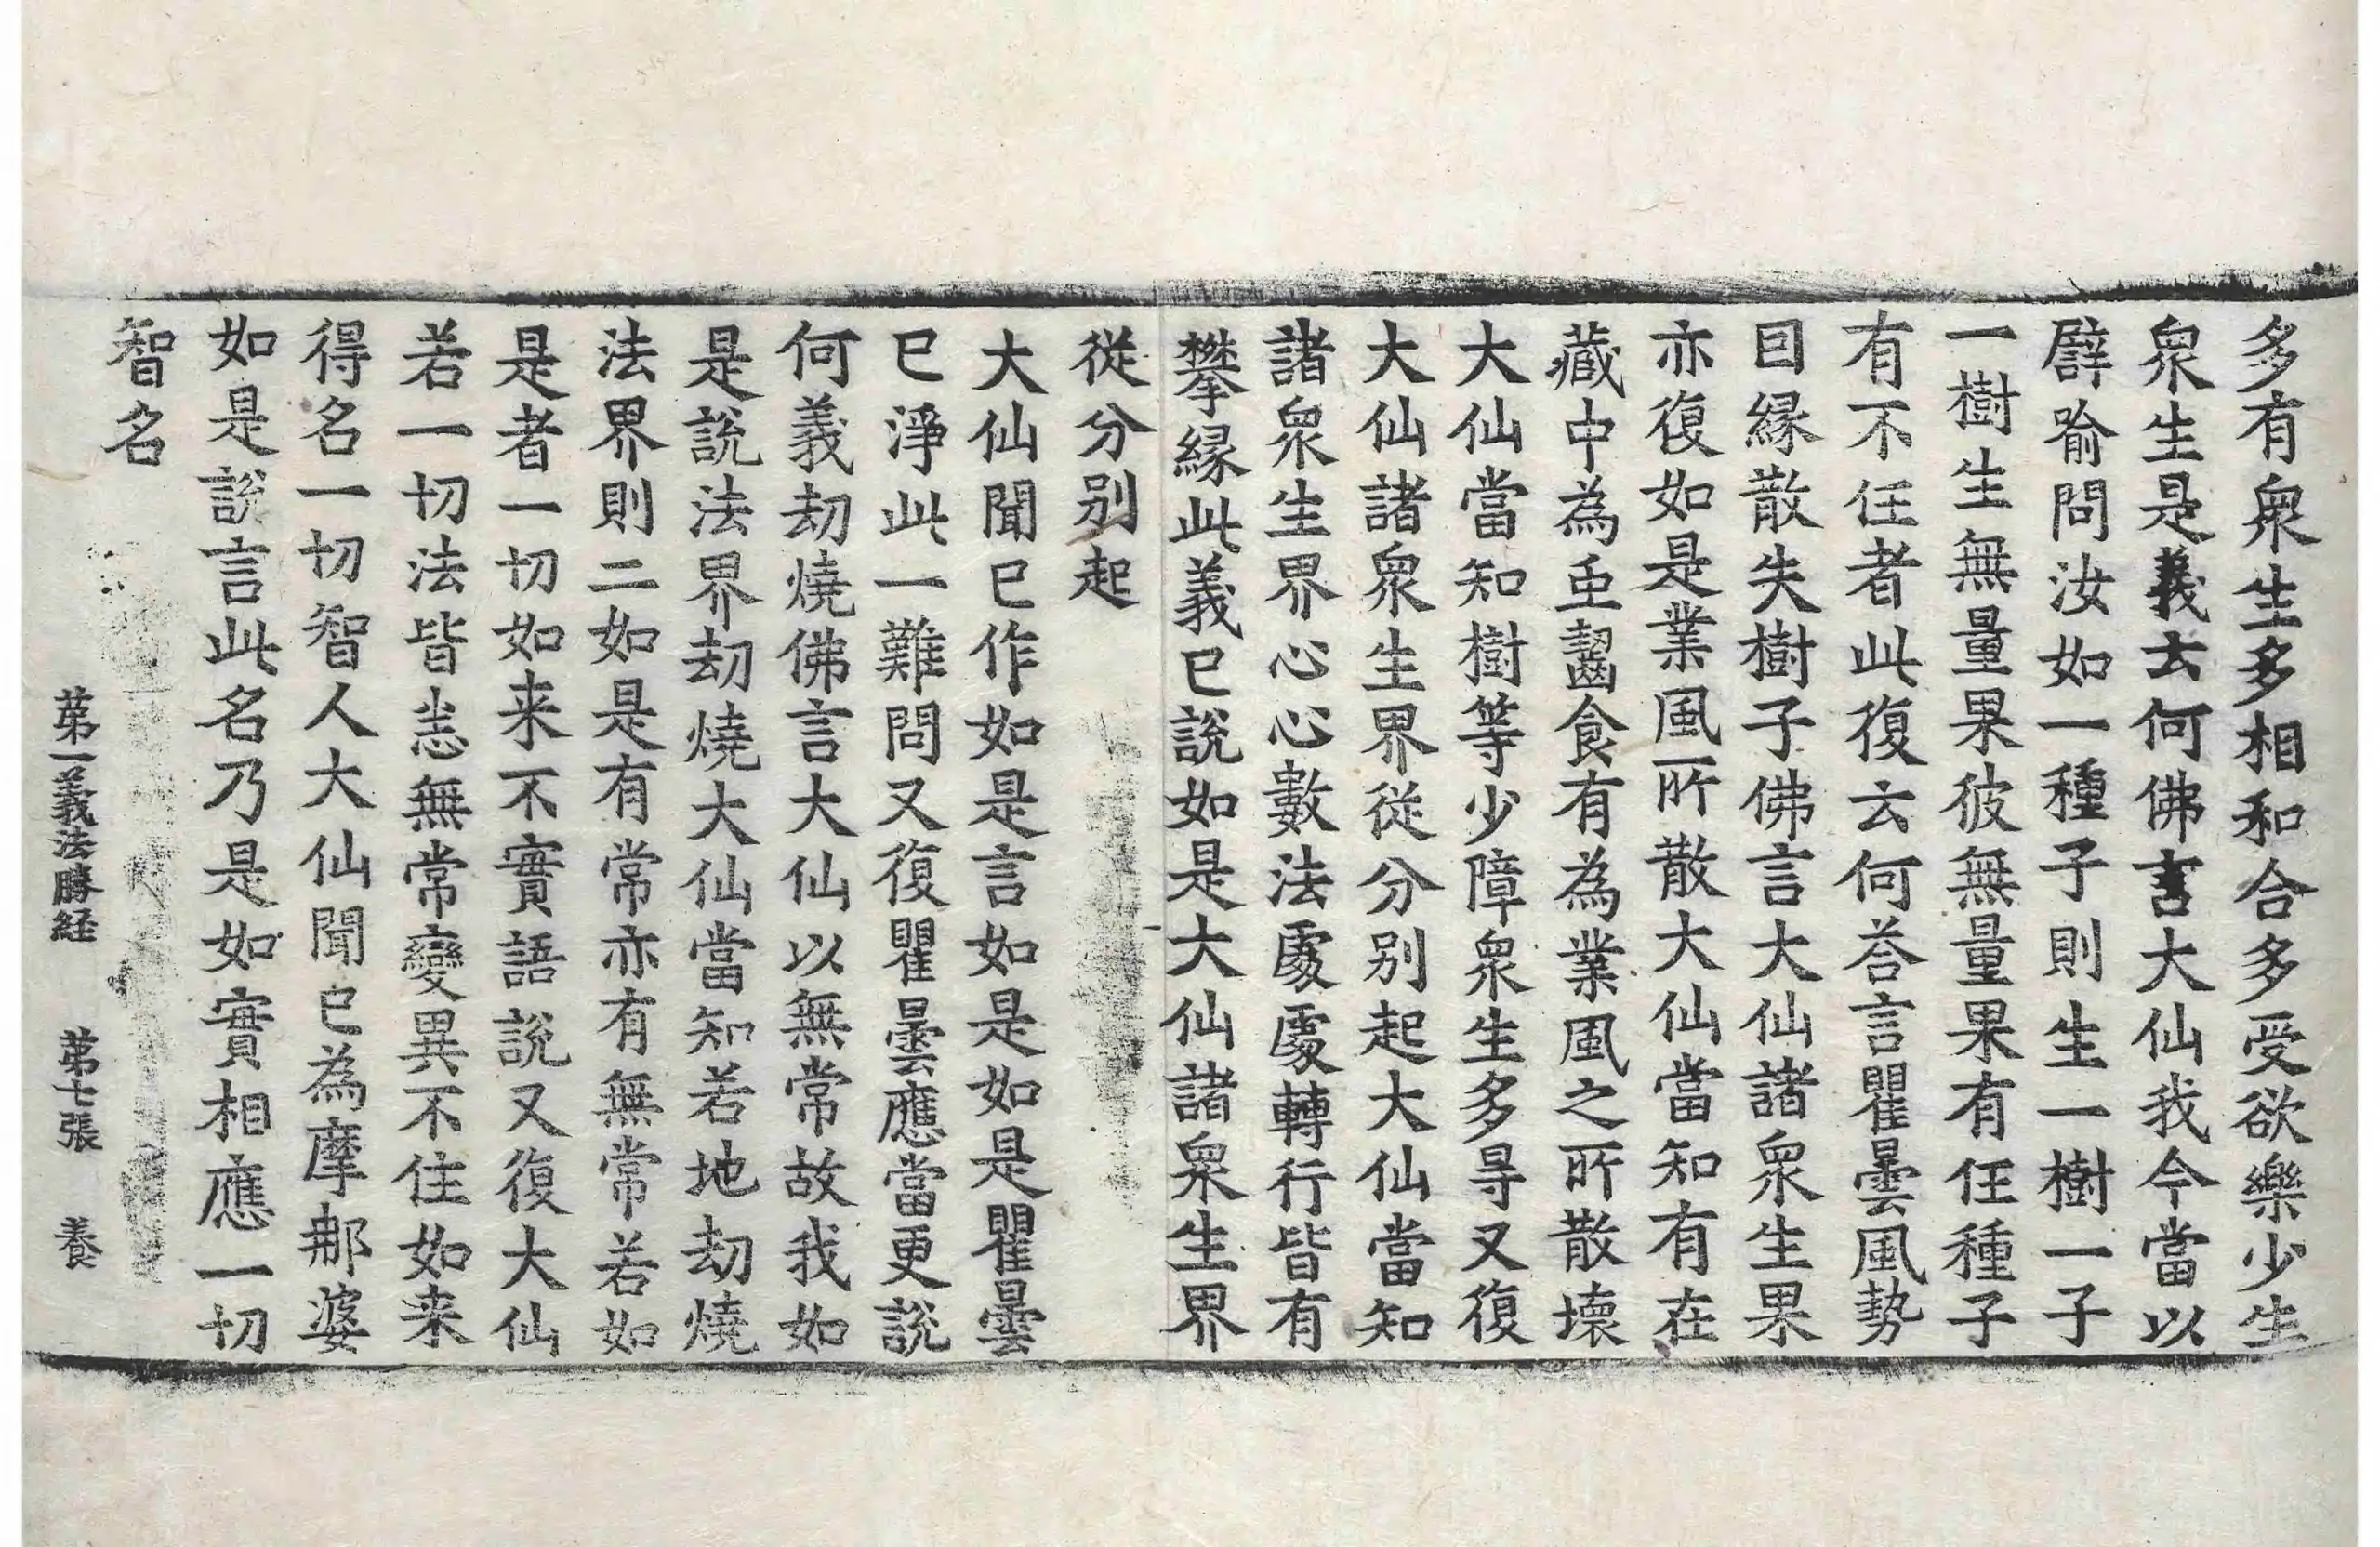 多有衆生多相和合多受欲樂少生
衆生是義云何佛言大仙我今當以
譬喻問汝如一種子則生一樹一子
一樹生無量果彼無量果有任種子
有不任者此復云何荅言瞿曇風勢
因縁散失樹子佛言大仙諸衆生果
亦復如是業風所散大仙當知有在
藏中為蟲齧食有為業風之所散壞
大仙當知樹等少障衆生多㝵又復
大仙諸衆生界從分別起大仙當知
諸衆生界心心數法處處轉行皆有
攀縁此義已說如是大仙諸衆生界
從分別起
大仙聞已作如是言如是如是瞿曇
已淨此一難問又復瞿曇應當更說
何義劫燒佛言大仙以無常故我如
是說法界劫燒大仙當知若地劫燒
法界則二如是有常亦有無常若如
是者一切如来不實語說又復大仙
若一切法皆悉無常變異不住如来
得名一切智人大仙聞已為摩那婆
如是說言此名乃是如實相應一切
智名
苐一義法勝経　苐七張　養